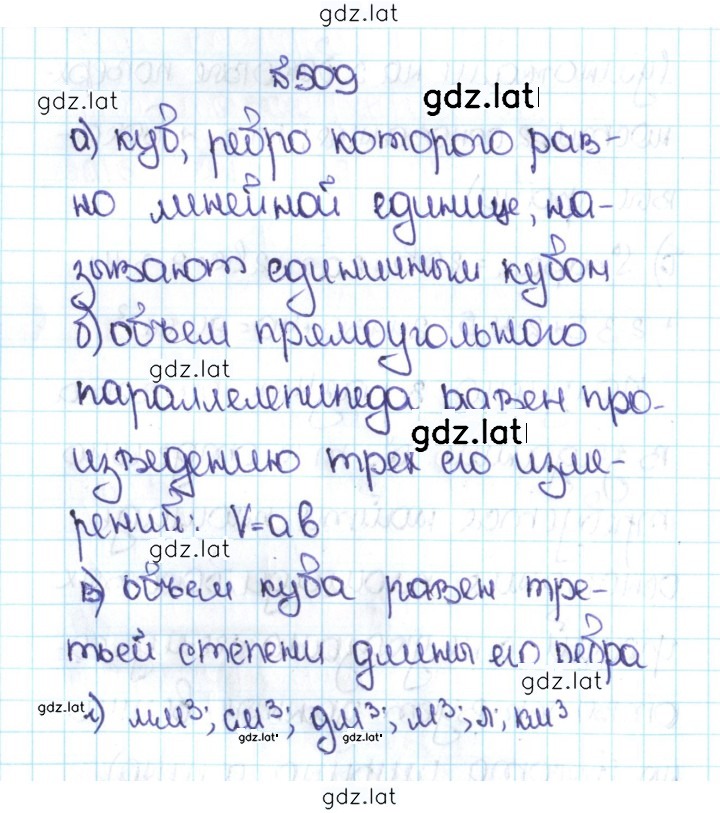 gdz.lat
№509
gdz.lat gdz.lat
а) куб, ребро которого рав-
но линейной единице, на-
зывают единичным кубом
б) объем прямоугольного
gdz.lat
параллелепипеда равен про-
gdz.lat
изведению трех его изме-
рений: V=ab
gdz.lat
в) объем куба равен тре-
тьей степени длины его ребра
gdz.lat
gdz.lat г) мм³; см³; дм³; м³; л; км³
gdz.lat gdz.lat
gdz.lat